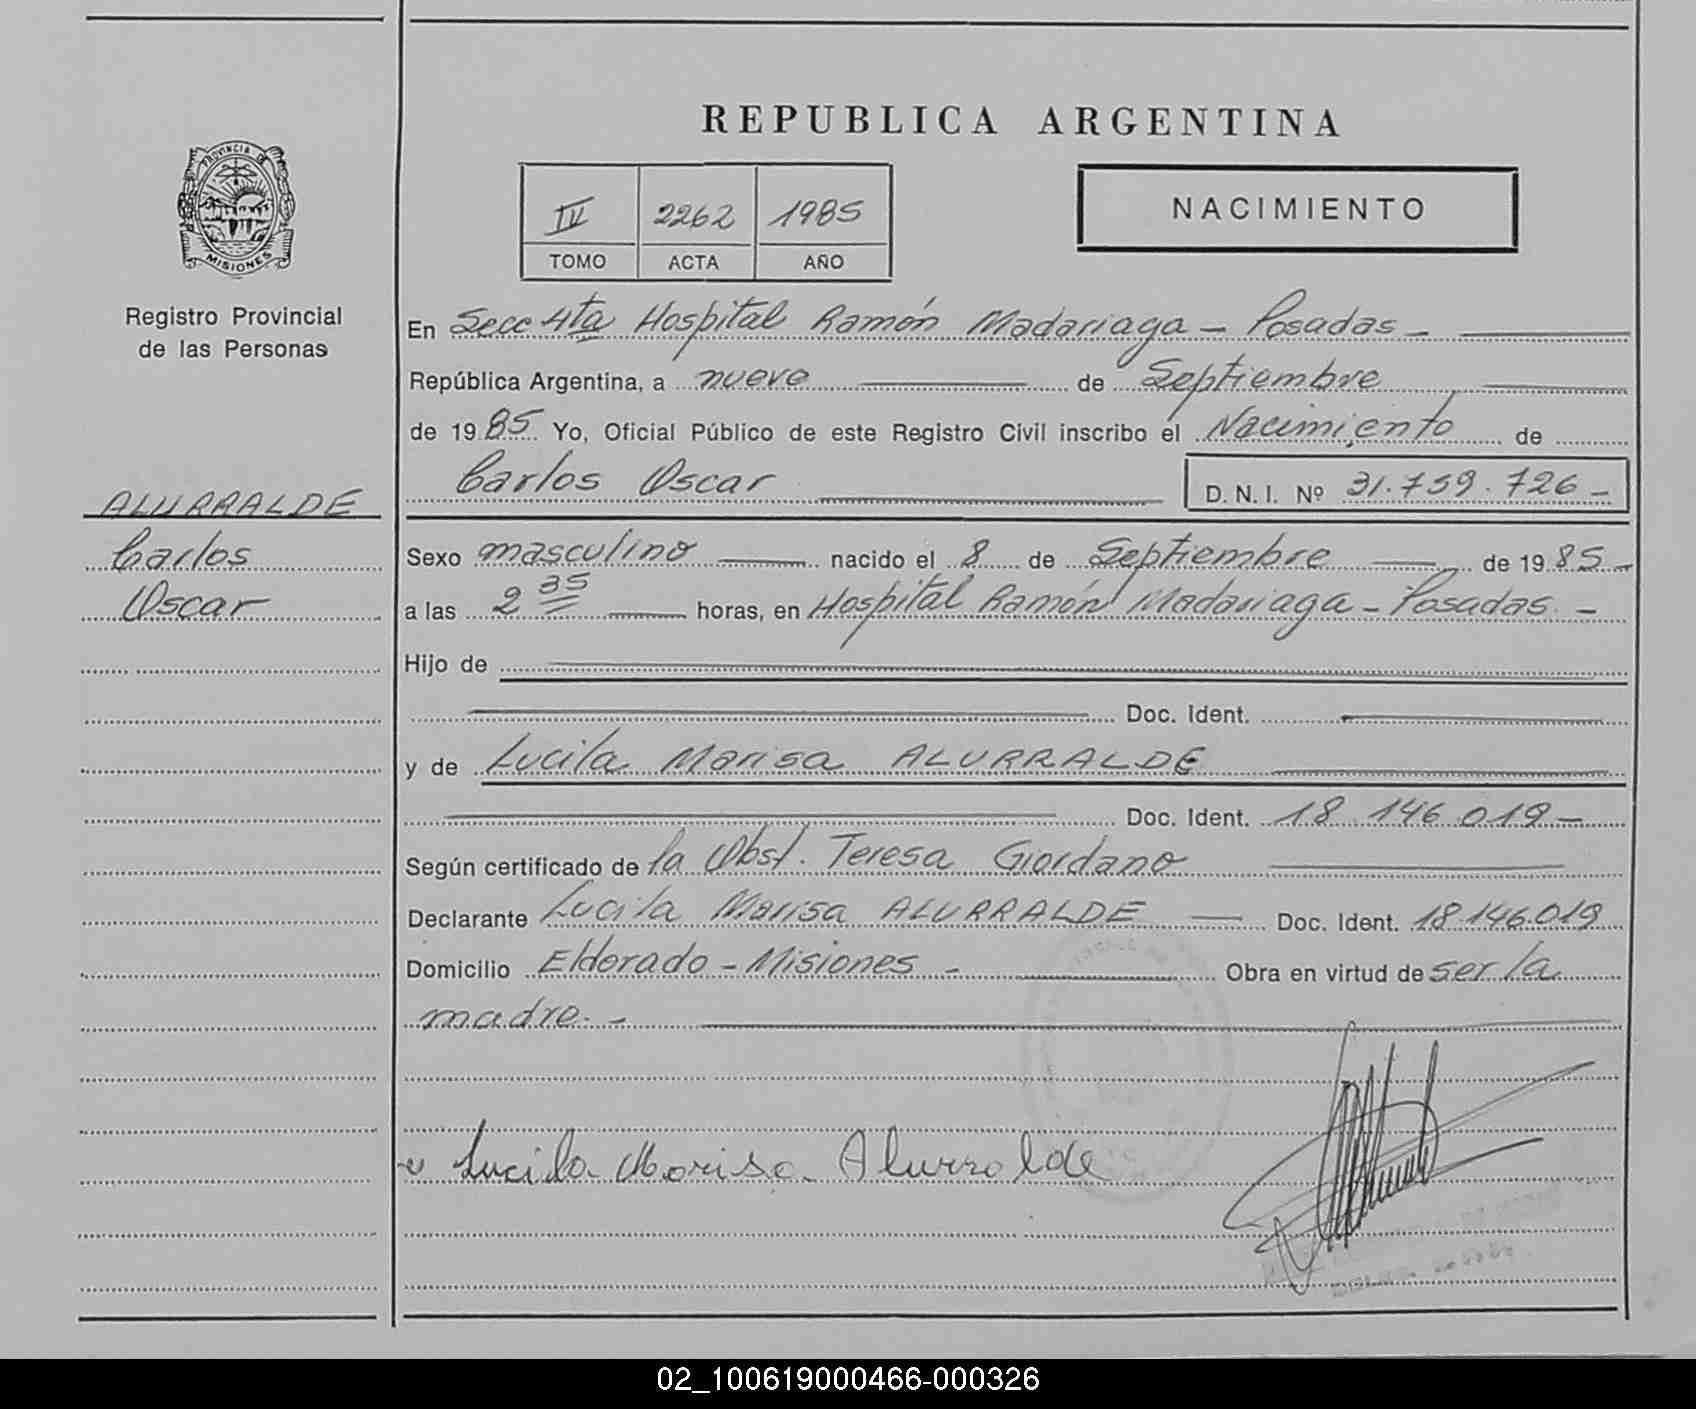 REPUBLICA ARGENTINA
PROVINCIA DE
MISIONES
Registro Provincial
de las Personas
IV 2262 1985
TOMO ACTA AÑO
NACIMIENTO
En Secc 4ta Hospital Ramón Madariaga - Posadas -
República Argentina, a nueve de Septiembre
de 1985 Yo, Oficial Público de este Registro Civil inscribo el Nacimiento de
Carlos Oscar D.N.I. Nº 31.759.726-
ALURRALDE
Carlos
Oscar
Sexo masculino nacido el 8 de Septiembre de 1985-
a las 2 35 horas, en Hospital Ramón Madariaga - Posadas. -
Hijo de
Doc. Ident.
y de Lucila Marisa ALURRALDE
Doc. Ident. 18.146.019-
Según certificado de la Obst. Teresa Giordano
Declarante Lucila Marisa ALURRALDE Doc. Ident. 18.146.019
Domicilio Eldorado - Misiones - Obra en virtud de ser la
madre. -
Lucila Marisa Alurralde
02_100619000466-000326